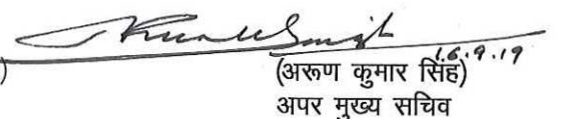 16.9.19
)
(अरूण कुमार सिंह)
अपर मुख्य सचिव